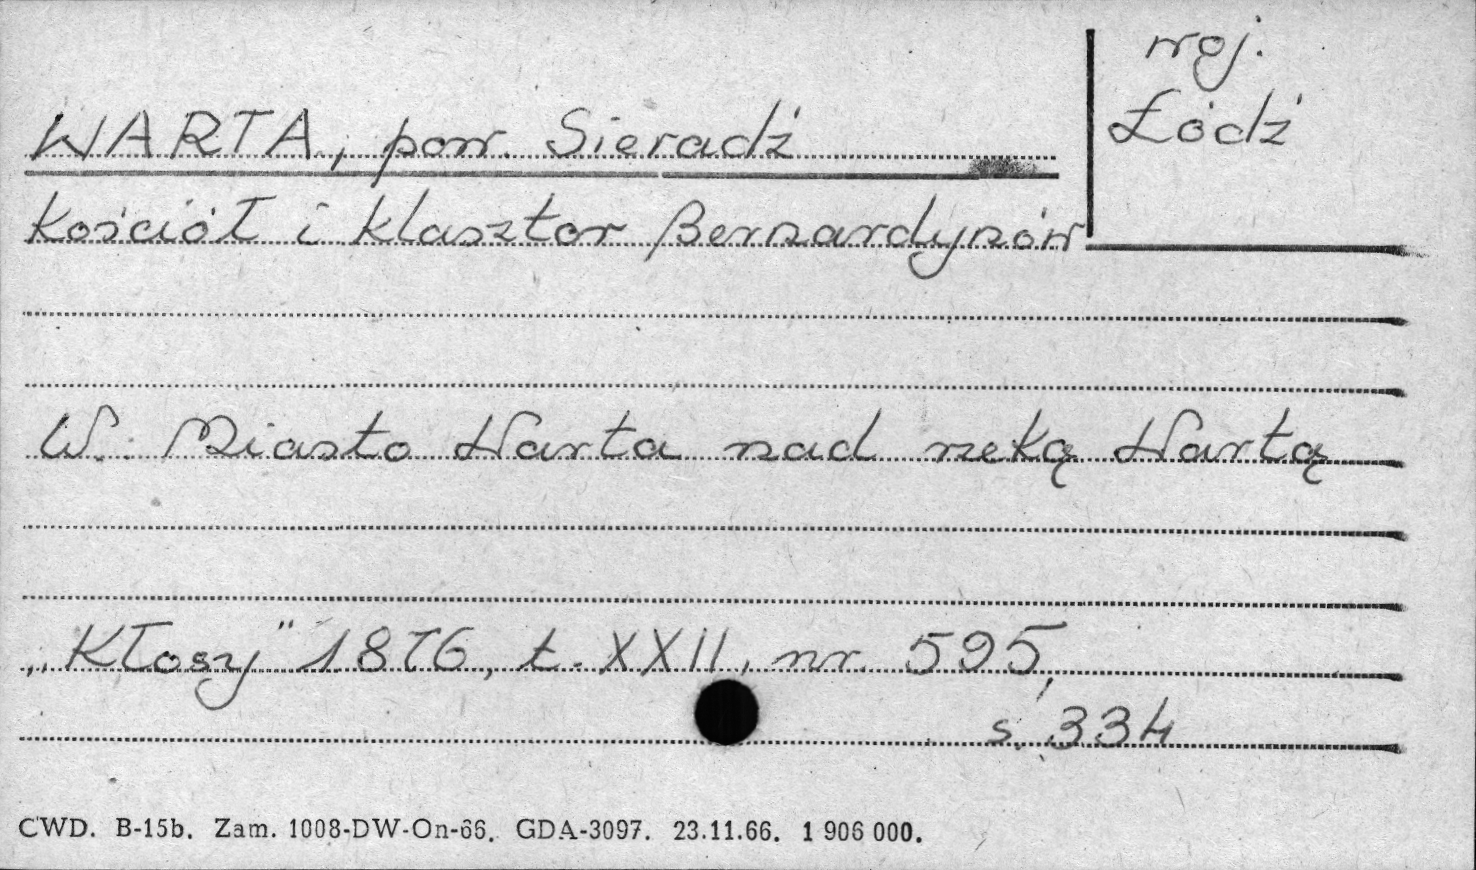 woj.
Łódź
WARTA, pow. Sieradź
kościół i klasztor Bernardynów
W: Miasto Warta nad rzeką Wartą
„Kłosy" 1876, t. XXII, nr. 595,
s. 334
CWD. B-15b. Zam. 1008-DW-On-66. GDA-3097. 23.11.66. 1 906 000.